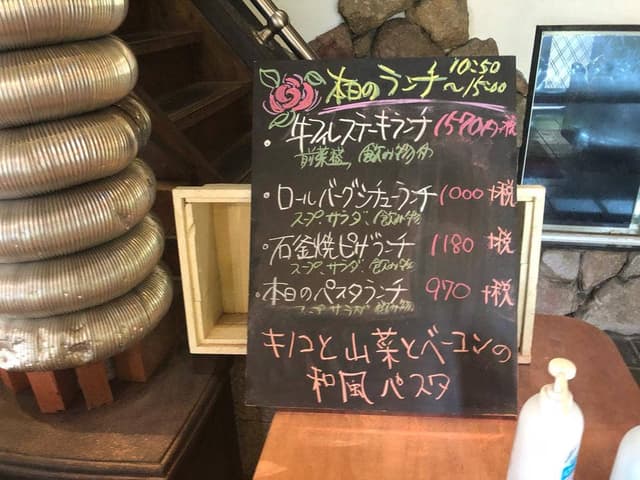 本日のランチ 10:50
～15:00
・牛フィレステーキランチ 1570円+税
前菜盛、飲み物付
・ロールバーグシチューランチ 1000+税
スープ サラダ、飲み物
・石釜焼ピザランチ 1180+税
スープ、サラダ、飲み物
・本日のパスタランチ 970+税
スープ サラダ 飲み物
キノコと山菜とベーコンの
和風パスタ